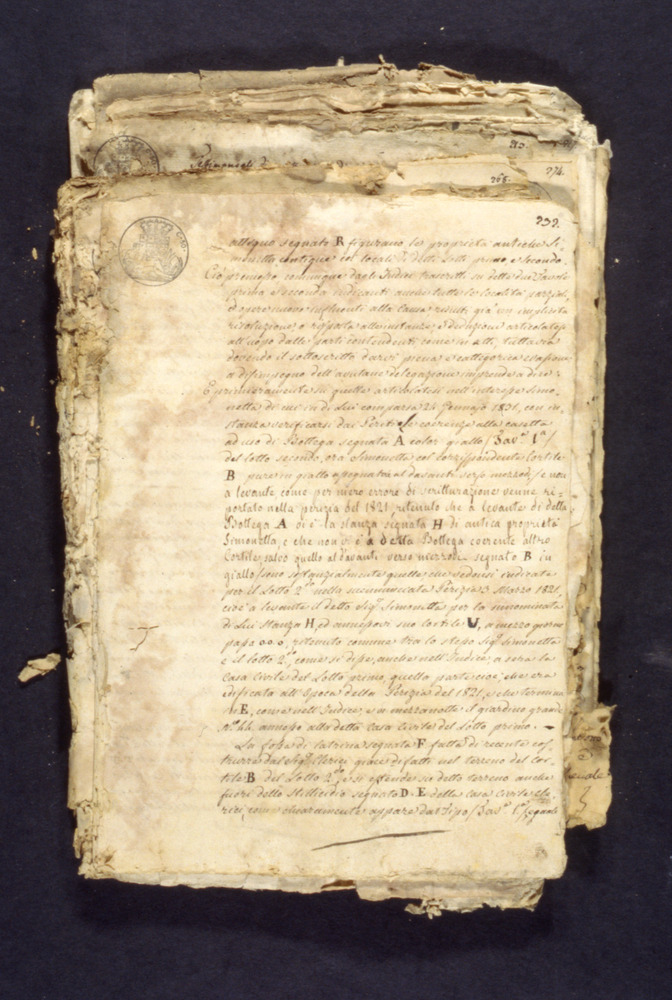 213.
274.
268.
232.
attiguo segnate R figurano le proprietà antiche Si-
monetta contigue coi locali di detti Lotti primo e secondo.
Ciò premesso comunque dagli Indici trascritti su dette due Tavole
prima e seconda indicanti anche tutte le località parziali,
ed opere nuove influenti alla Causa risulti già un implicita
risoluzione, o risposta alle instanze, e deduzioni articolate
all'uopo dalle parti contendenti come in atti, tuttavia
dovendo il sottoscritto darvi piena e categorica evasione
a disimpegno dell'avutane delegazione imprende a dire:
E primieramente su quelle articolatesi nell'interesse Simo-
netta di cui in di Lui comparsa 24 Gennajo 1831, con in-
stanza verificarsi dai Periti le coerenze alla casetta
ad uso di Bottega segnata A color giallo (Tav.ª 1ª)
del lotto secondo, ora Simonetta col corrispondente Cortile
B pure in giallo assegnatta al davanti verso mezzodì, e non
a levante come per mero errore di scritturazione venne ri=
portato nella perizia del 1821, ritenuto che a levante di detta
Bottega A vi è la stanza segnata H di antica proprietà
Simonetta, e che non vi è a detta Bottega coerente altro
Cortile, salvo quello al davanti verso mezzodì segnato B in
giallo) sono sostanzialmente quelle che vedonsi indicate
per il Lotto 2.do nella summenzionata Perizia 3 Marzo 1821,
cioè a levante il detto Sig.r Simonetta per la surnominata
di Lui Stanza H, ed annessovi suo Cortile U, a mezzo giorno
passo o o o, ritenuto comune tra lo stesso Sig.r Simonetta
e il lotto 2.do, come si disse, anche nell'Indice, a sera la
Casa Civile del Lotto primo, quella parte cioè, che era
edificata all'epoca della Perizia del 1821, e che termina
in E, come nell'Indice, e a mezzanotte il giardino grande
N.º 44, annesso alla detta Casa Civile del Lotto primo. —
La fossa di latrina segnata F fatta di recente cos-
truire dal Sig.r Clerici giace difatti nel terreno del Cor-
tile B del Lotto 2.do, e si estende su detto terreno anche
fuori dello Stillicidio segnato D. E della Casa Civile Cle-
rici, come chiaramente appare dal Tipo (Tav.ª 1ª) segnate